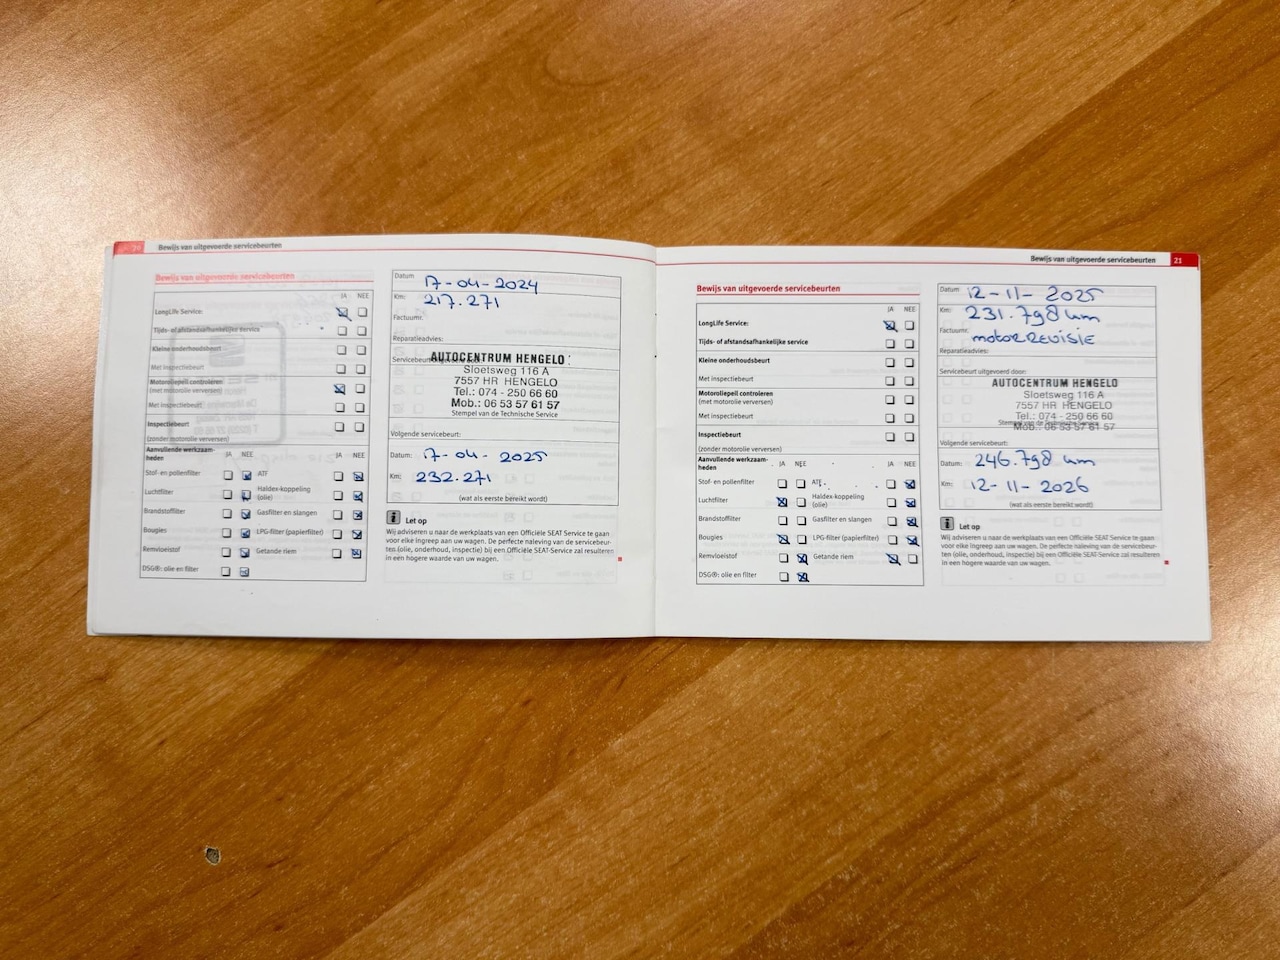 20 Bewijs van uitgevoerde servicebeurten
Bewijs van uitgevoerde servicebeurten
JA NEE
LongLife Service:
Tijds- of afstandsafhankelijke service
Kleine onderhoudsbeurt
Met inspectiebeurt
Motoroliepeil controleren
(met motorolie verversen)
Met inspectiebeurt
Inspectiebeurt
(zonder motorolie verversen)
Aanvullende werkzaam-
heden
JA NEE JA NEE
Stof- en pollenfilter ATF
Luchtfilter Haldex-koppeling
(olie)
Brandstoffilter Gasfilter en slangen
Bougies LPG-filter (papierfilter)
Remvloeistof Getande riem
DSG®: olie en filter
Datum 17-04-2024
Km: 217.271
Factuurnr.
Reparatieadvies:
AUTOCENTRUM HENGELO
Sloetsweg 116 A
7557 HR HENGELO
Tel.: 074 - 250 66 60
Mob.: 06 53 57 61 57
Stempel van de Technische Service
Volgende servicebeurt:
Datum: 17-04-2025
Km: 232.271
(wat als eerste bereikt wordt)
Let op
Wij adviseren u naar de werkplaats van een Officiële SEAT Service te gaan
voor elke ingreep aan uw wagen. De perfecte naleving van de servicebeur-
ten (olie, onderhoud, inspectie) bij een Officiële SEAT-Service zal resulteren
in een hogere waarde van uw wagen.
Bewijs van uitgevoerde servicebeurten 21
Bewijs van uitgevoerde servicebeurten
JA NEE
LongLife Service:
Tijds- of afstandsafhankelijke service
Kleine onderhoudsbeurt
Met inspectiebeurt
Motoroliepeil controleren
(met motorolie verversen)
Met inspectiebeurt
Inspectiebeurt
(zonder motorolie verversen)
Aanvullende werkzaam-
heden
JA NEE JA NEE
Stof- en pollenfilter ATF
Luchtfilter Haldex-koppeling
(olie)
Brandstoffilter Gasfilter en slangen
Bougies LPG-filter (papierfilter)
Remvloeistof Getande riem
DSG®: olie en filter
Datum 12-11-2025
Km: 231.798 km
Factuurnr. motorREVISIE
Reparatieadvies:
Servicebeurt uitgevoerd door:
AUTOCENTRUM HENGELO
Sloetsweg 116 A
7557 HR HENGELO
Tel.: 074 - 250 66 60
Mob.: 06 53 57 61 57
Volgende servicebeurt:
Datum: 246.798 km
Km: 12-11-2026
(wat als eerste bereikt wordt)
Let op
Wij adviseren u naar de werkplaats van een Officiële SEAT Service te gaan
voor elke ingreep aan uw wagen. De perfecte naleving van de servicebeur-
ten (olie, onderhoud, inspectie) bij een Officiële SEAT-Service zal resulteren
in een hogere waarde van uw wagen.